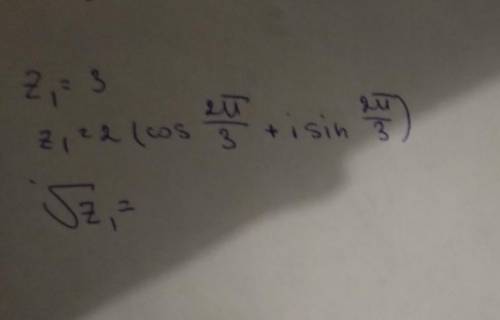 z₁ = 3
z₁ = 2 (cos 2π/3 + i sin 2π/3)
√z₁ =